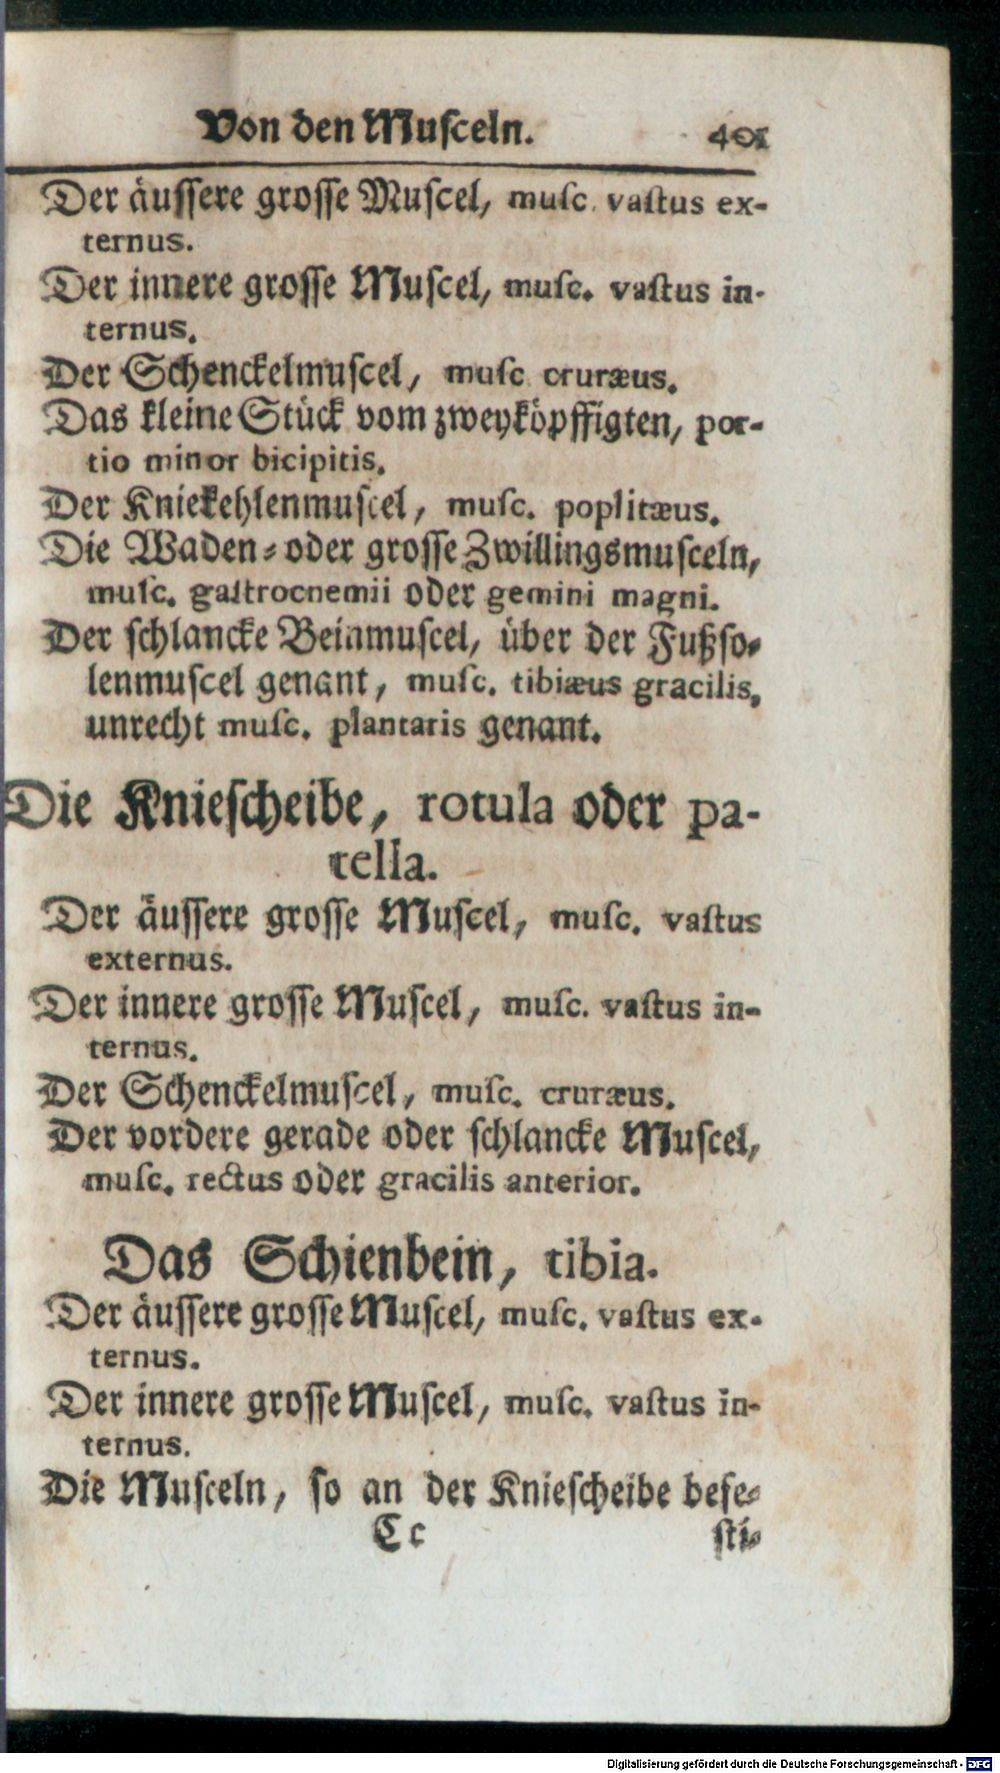 Von den Musceln. 401
Der äussere grosse Muscel, musc. vastus ex-
ternus.
Der innere grosse Muscel, musc. vastus in-
ternus.
Der Schenckelmuscel, musc cruræus.
Das kleine Stück vom zweyköpffigten, por-
tio minor bicipitis.
Der Kniekehlenmuscel, musc. poplitæus.
Die Waden- oder grosse Zwillingsmusceln,
musc. gastrocnemii oder gemini magni.
Der schlancke Beinmuscel, über der Fußso-
lenmuscel genant, musc. tibiæus gracilis,
unrecht musc. plantaris genant.
Die Kniescheibe, rotula oder pa-
tella.
Der äussere grosse Muscel, musc. vastus
externus.
Der innere grosse Muscel, musc. vastus in-
ternus.
Der Schenckelmuscel, musc. cruræus.
Der vordere gerade oder schlancke Muscel,
musc. rectus oder gracilis anterior.
Das Schienbein, tibia.
Der äussere grosse Muscel, musc. vastus ex-
ternus.
Der innere grosse Muscel, musc. vastus in-
ternus.
Die Musceln, so an der Kniescheibe befe-
Cc sti-
Digitalisierung gefördert durch die Deutsche Forschungsgemeinschaft - DFG